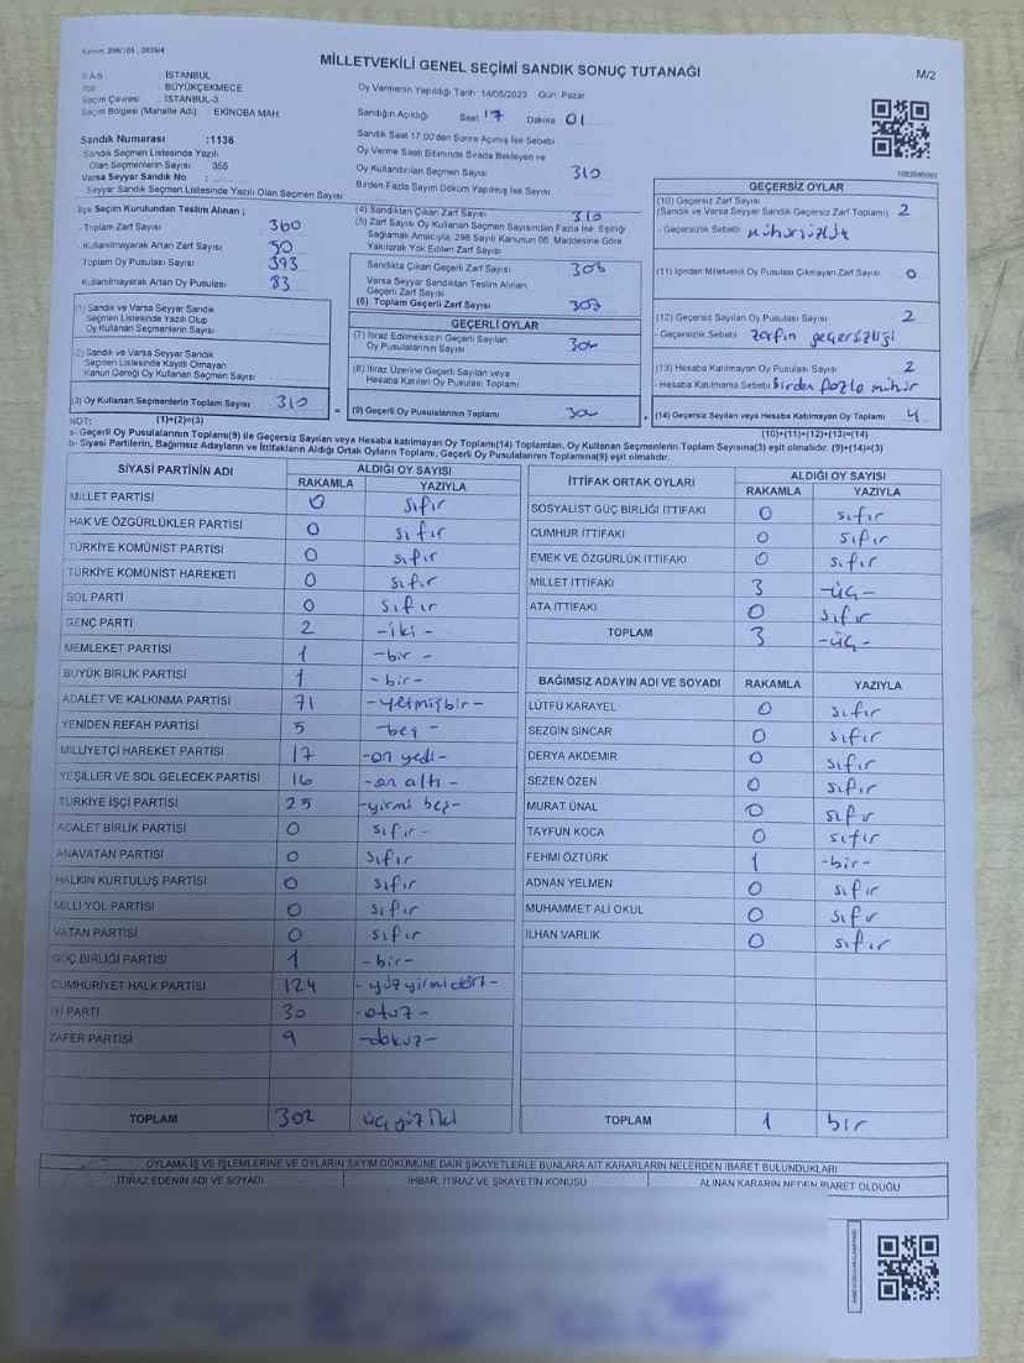 MİLLETVEKİLİ GENEL SEÇİMİ SANDIK SONUÇ TUTANAĞI
M/2
İSTANBUL
BÜYÜKÇEKMECE
Seçim Çevresi : İSTANBUL-3
Seçim Bölgesi (Mahalle Adı) : EKİNOBA MAH.
Sandık Numarası :1136
Sandık Seçmen Listesinde Yazılı
Olan Seçmenlerin Sayısı : 355
Varsa Seyyar Sandık No :
Seyyar Sandık Seçmen Listesinde Yazılı Olan Seçmen Sayısı
Oy Vermenin Yapıldığı Tarih :14/05/2023 Gün: Pazar
Sandığın Açıldığı Saat 17 Dakika 01
Sandık Saat 17:00'den Sonra Açılmış İse Sebebi
Oy Verme Saati Bitiminde Sırada Bekleyen ve
Oy Kullandırılan Seçmen Sayısı 310
Birden Fazla Sayım Döküm Yapılmış İse Sayısı
İlçe Seçim Kurulundan Teslim Alınan ;
Toplam Zarf Sayısı 360
Kullanılmayarak Artan Zarf Sayısı 50
Toplam Oy Pusulası Sayısı 393
Kullanılmayarak Artan Oy Pusulası 83
(1) Sandık ve Varsa Seyyar Sandık
Seçmen Listesinde Yazılı Olup
Oy Kullanan Seçmenlerin Sayısı
(2) Sandık ve Varsa Seyyar Sandık
Seçmen Listesinde Kaydı Olmayan
Kanun Gereği Oy Kullanan Seçmen Sayısı
(3) Oy Kullanan Seçmenlerin Toplam Sayısı 310
(1)+(2)=(3)
(4) Sandıktan Çıkan Zarf Sayısı 310
(5) Zarf Sayısı Oy Kullanan Seçmen Sayısından Fazla İse, Eşitliği
Sağlamak Amacıyla, 298 Sayılı Kanunun 98. Maddesine Göre
Yakılarak Yok Edilen Zarf Sayısı
Sandıkta Çıkan Geçerli Zarf Sayısı
Varsa Seyyar Sandıktan Teslim Alınan
Geçerli Zarf Sayısı
(6) Toplam Geçerli Zarf Sayısı
GEÇERLİ OYLAR
(7) İtiraz Edilmeksizin Geçerli Sayılan
Oy Pusulalarının Sayısı
(8) İtiraz Üzerine Geçerli Sayılan veya
Hesaba Katılan Oy Pusulası Toplamı
= (9) Geçerli Oy Pusulalarının Toplamı
GEÇERSİZ OYLAR
(10) Geçersiz Zarf Sayısı
(Sandık ve Varsa Seyyar Sandık Geçersiz Zarf Toplamı) 2
- Geçersizlik Sebebi mühürsüzlük
(11) İçinden Milletvekili Oy Pusulası Çıkmayan Zarf Sayısı 0
(12) Geçersiz Sayılan Oy Pusulası Sayısı 2
- Geçersizlik Sebebi zarfın geçersizliği
(13) Hesaba Katılmayan Oy Pusulası Sayısı 2
- Hesaba Katılmama Sebebi birden fazla mühür
(14) Geçersiz Sayılan veya Hesaba Katılmayan Oy Toplamı 4
(10)+(11)+(12)+(13)=(14)
NOT:
a- Geçerli Oy Pusulalarının Toplamı(9) ile Geçersiz Sayılan veya Hesaba katılmayan Oy Toplamı(14) Toplamları, Oy Kullanan Seçmenlerin Toplam Sayısına(3) eşit olmalıdır. (9)+(14)=(3)
b- Siyasi Partilerin, Bağımsız Adayların ve İttifakların Aldığı Ortak Oyların Toplamı, Geçerli Oy Pusulalarının Toplamına(9) eşit olmalıdır.
SİYASİ PARTİNİN ADI ALDIĞI OY SAYISI
RAKAMLA YAZIYLA
MİLLET PARTİSİ 0 sıfır
HAK VE ÖZGÜRLÜKLER PARTİSİ 0 sıfır
TÜRKİYE KOMÜNİST PARTİSİ 0 sıfır
TÜRKİYE KOMÜNİST HAREKETİ 0 sıfır
SOL PARTİ 0 sıfır
GENÇ PARTİ 2 -iki-
MEMLEKET PARTİSİ 1 -bir-
BÜYÜK BİRLİK PARTİSİ 1 -bir-
ADALET VE KALKINMA PARTİSİ 71 -yetmişbir-
YENİDEN REFAH PARTİSİ 5 -beş-
MİLLİYETÇİ HAREKET PARTİSİ 17 -on yedi-
YEŞİLLER VE SOL GELECEK PARTİSİ 16 -on altı-
TÜRKİYE İŞÇİ PARTİSİ 25 -yirmi beş-
ADALET BİRLİK PARTİSİ 0 sıfır-
ANAVATAN PARTİSİ 0 sıfır
HALKIN KURTULUŞ PARTİSİ 0 sıfır
MİLLİ YOL PARTİSİ 0 sıfır
VATAN PARTİSİ 0 sıfır
GÜÇ BİRLİĞİ PARTİSİ 1 -bir-
CUMHURİYET HALK PARTİSİ 124 -yüzyirmidört-
İYİ PARTİ 30 -otuz-
ZAFER PARTİSİ 9 -dokuz-
TOPLAM 302 üçyüz iki
İTTİFAK ORTAK OYLARI ALDIĞI OY SAYISI
RAKAMLA YAZIYLA
SOSYALİST GÜÇ BİRLİĞİ İTTİFAKI 0 sıfır
CUMHUR İTTİFAKI 0 sıfır
EMEK VE ÖZGÜRLÜK İTTİFAKI 0 sıfır
MİLLET İTTİFAKI 3 -üç-
ATA İTTİFAKI 0 sıfır
TOPLAM 3 -üç-
BAĞIMSIZ ADAYIN ADI VE SOYADI RAKAMLA YAZIYLA
LÜTFÜ KARAYEL 0 sıfır
SEZGİN SİNCAR 0 sıfır
DERYA AKDEMİR 0 sıfır
SEZEN ÖZEN 0 sıfır
MURAT ÜNAL 0 sıfır
TAYFUN KOCA 0 sıfır
FEHMİ ÖZTÜRK 1 -bir-
ADNAN YELMEN 0 sıfır
MUHAMMET ALİ OKUL 0 sıfır
İLHAN VARLIK 0 sıfır
TOPLAM 1 bir
OYLAMA İŞ VE İŞLEMLERİNE VE OYLARIN SAYIM DÖKÜMÜNE DAİR ŞİKAYETLERLE BUNLARA AİT KARARLARIN NELERDEN İBARET BULUNDUKLARI
İTİRAZ EDENİN ADI VE SOYADI İHBAR, İTİRAZ VE ŞİKAYETİN KONUSU ALINAN KARARIN NEDEN İBARET OLDUĞU